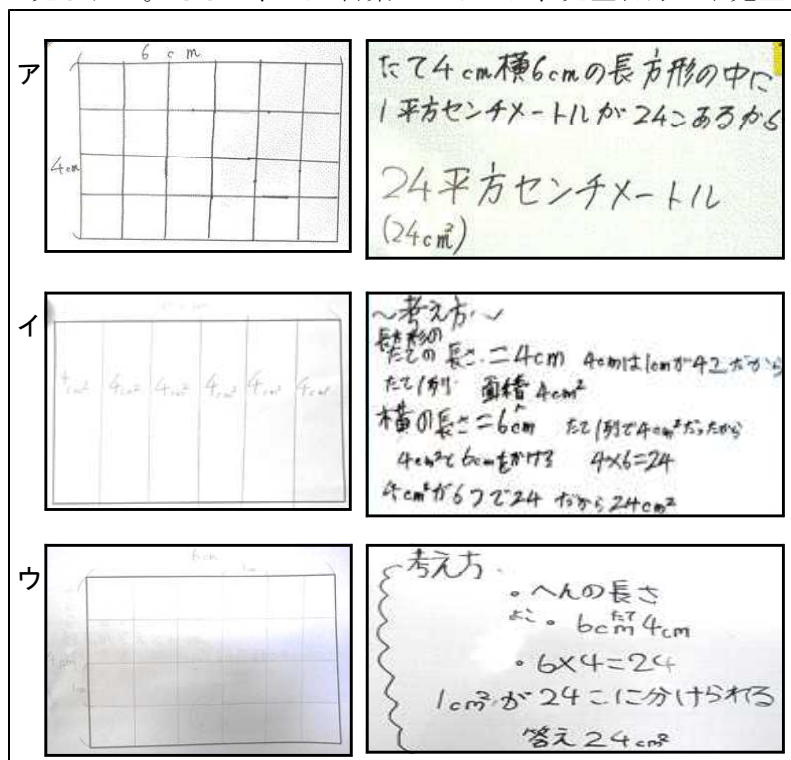 ア
6cm
4cm
たて4cm横6cmの長方形の中に
1平方センチメートルが24こあるから
24平方センチメートル
(24c㎡)
イ
4cm² 4cm² 4cm² 4cm² 4cm² 4cm²
~考え方~
長方形の
たての長さ=4cm 4cmは1cmが4こだから
たて1列 面積4cm²
横の長さ=6cm たて1列で4cm²だったから
4cm²と6cmをかける 4×6=24
4cm²が6つで24 だから24cm²
ウ
6cm
4cm
考え方
・へんの長さ
よこ・6cm たて4cm
・6×4=24
1cm²が24こに分けられる
答え24cm²